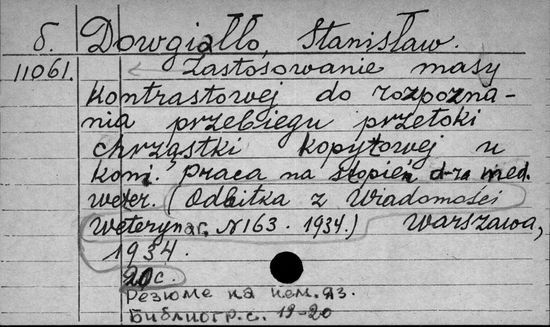 б. Dowgiałło, Stanisław.
11061. Zastosowanie masy
kontrastowej do rozpozna-
nia przebiegu przetoki
chrząstki kopytowej u
koni. Praca na stopień d-ra med.
weter. (Odbitka z Wiadomości
Weterynar. N 163. 1934.) Warszawa,
1934.
20 c.
Резюме на нем. яз.
Библиогр. с. 19-20